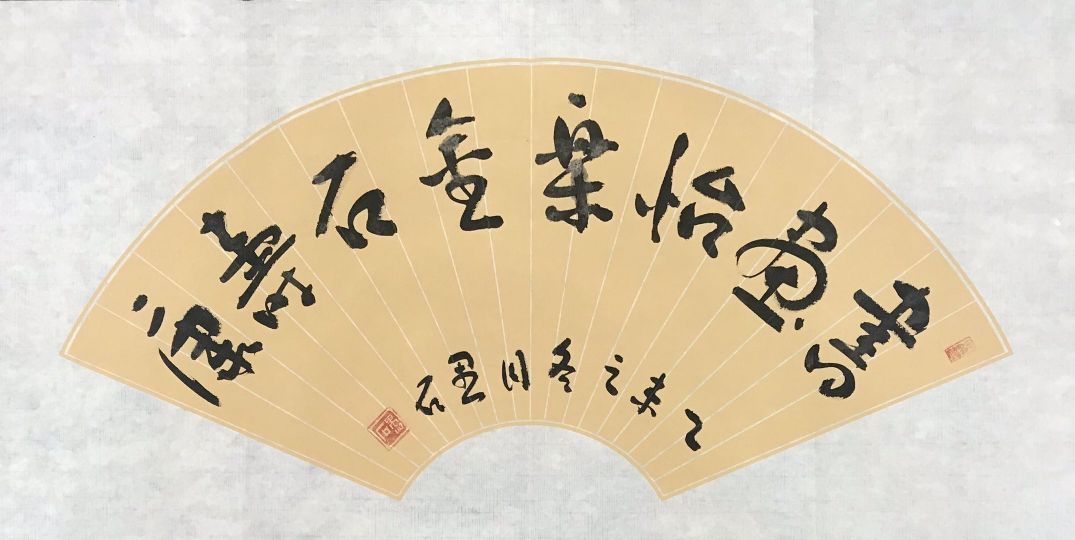 書畫怡樂金石壽康
乙未之冬月墨石